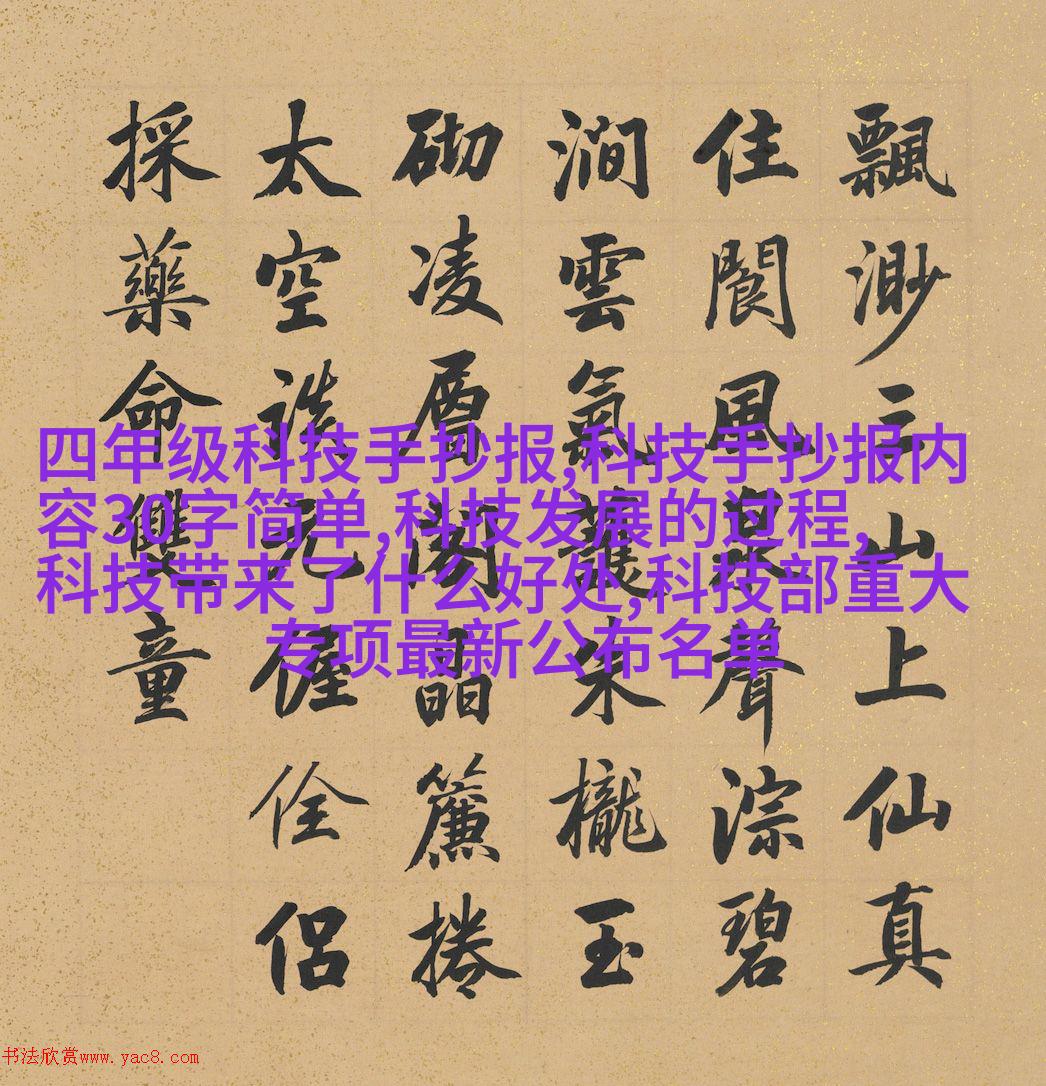 飄渺三山上仙真
住閬風泉聲淙碧
澗雲氣朱櫳玉
砌凌層閣晶簾捲
太空元偓佺侶
採藥命雙童
四年级科技手抄报,科技手抄报内
容30字简单,科技发展的过程,
科技带来了什么好处,科技部重大
专项最新公布名单
书法欣赏www.yac8.com